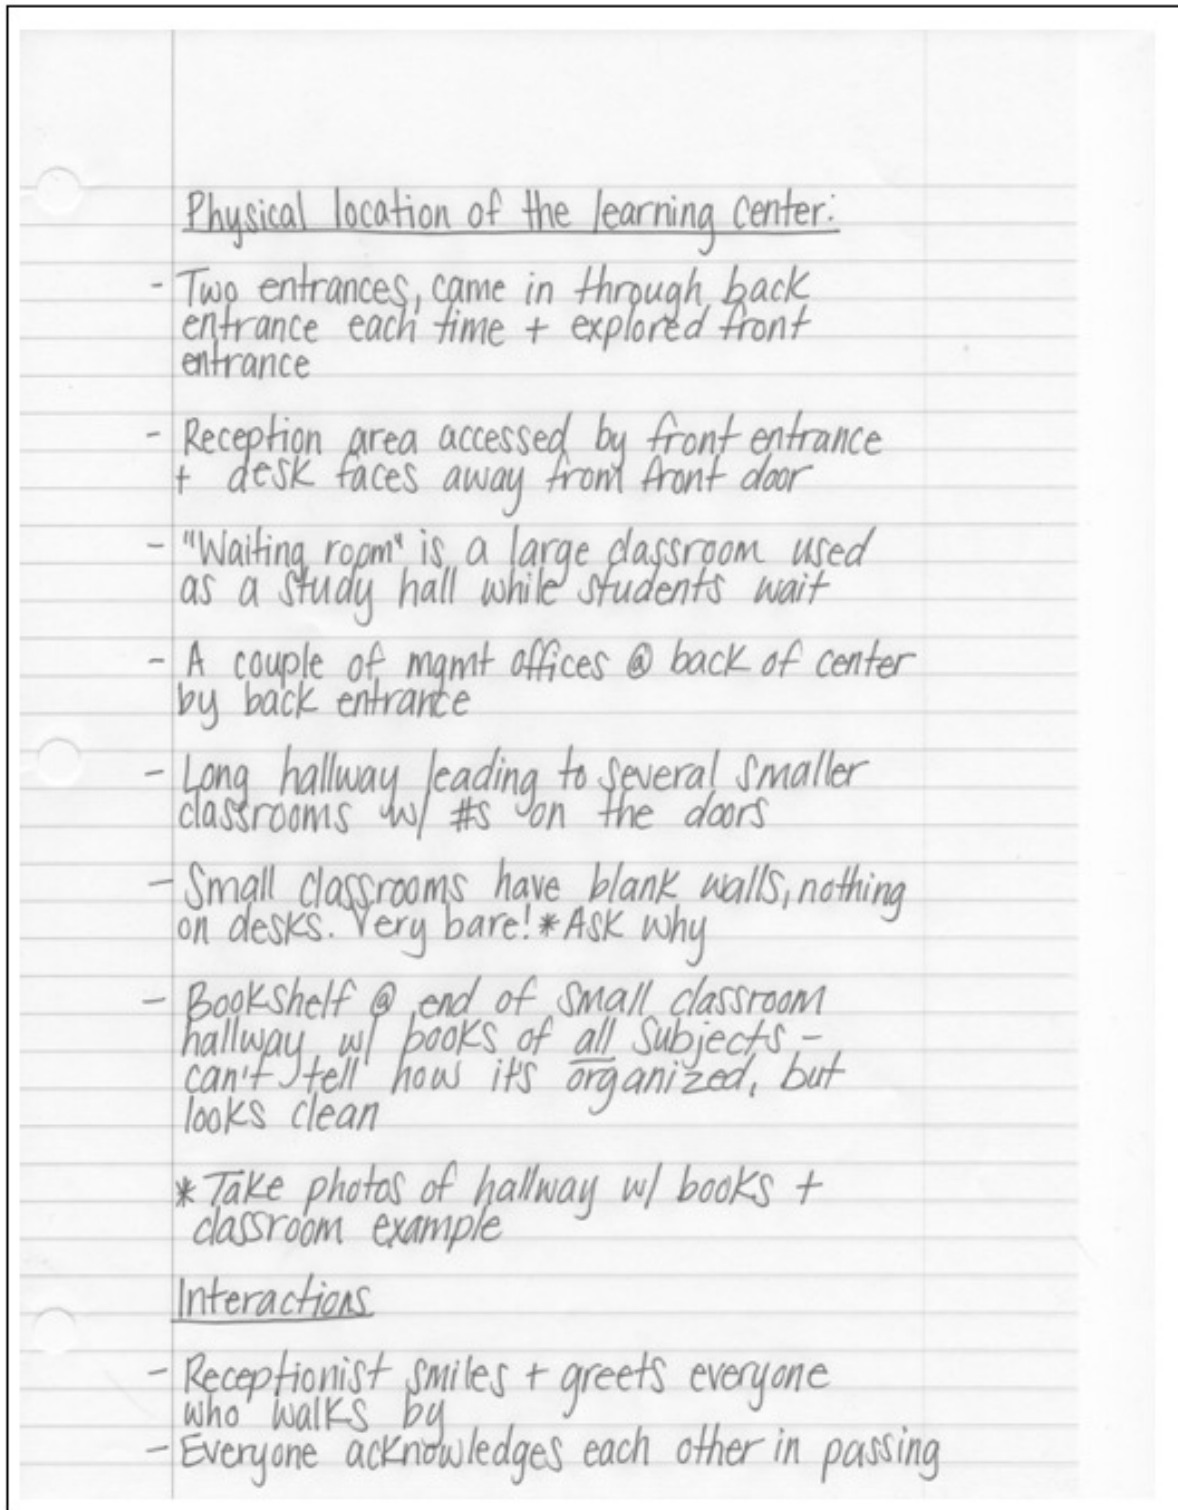 Physical location of the learning center:
- Two entrances, came in through back
entrance each time + explored front
entrance
- Reception area accessed by front entrance
+ desk faces away from front door
- "Waiting room" is a large classroom used
as a study hall while students wait
- A couple of mgmt offices @ back of center
by back entrance
- Long hallway leading to several smaller
classrooms w/ #s on the doors
- Small classrooms have blank walls, nothing
on desks. Very bare! *Ask why
- Bookshelf @ end of small classroom
hallway w/ books of all subjects -
can't tell how it's organized, but
looks clean
* Take photos of hallway w/ books +
classroom example
Interactions
- Receptionist smiles + greets everyone
who walks by
- Everyone acknowledges each other in passing